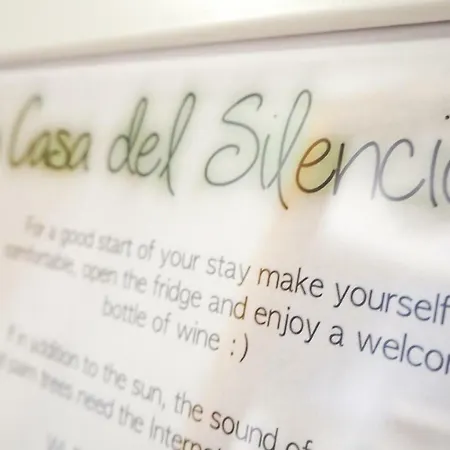 Casa del Silenci
For a good start of your stay make yourself
comfortable, open the fridge and enjoy a welcom
bottle of wine :)
If in addition to the sun, the sound of
trees need the Internet